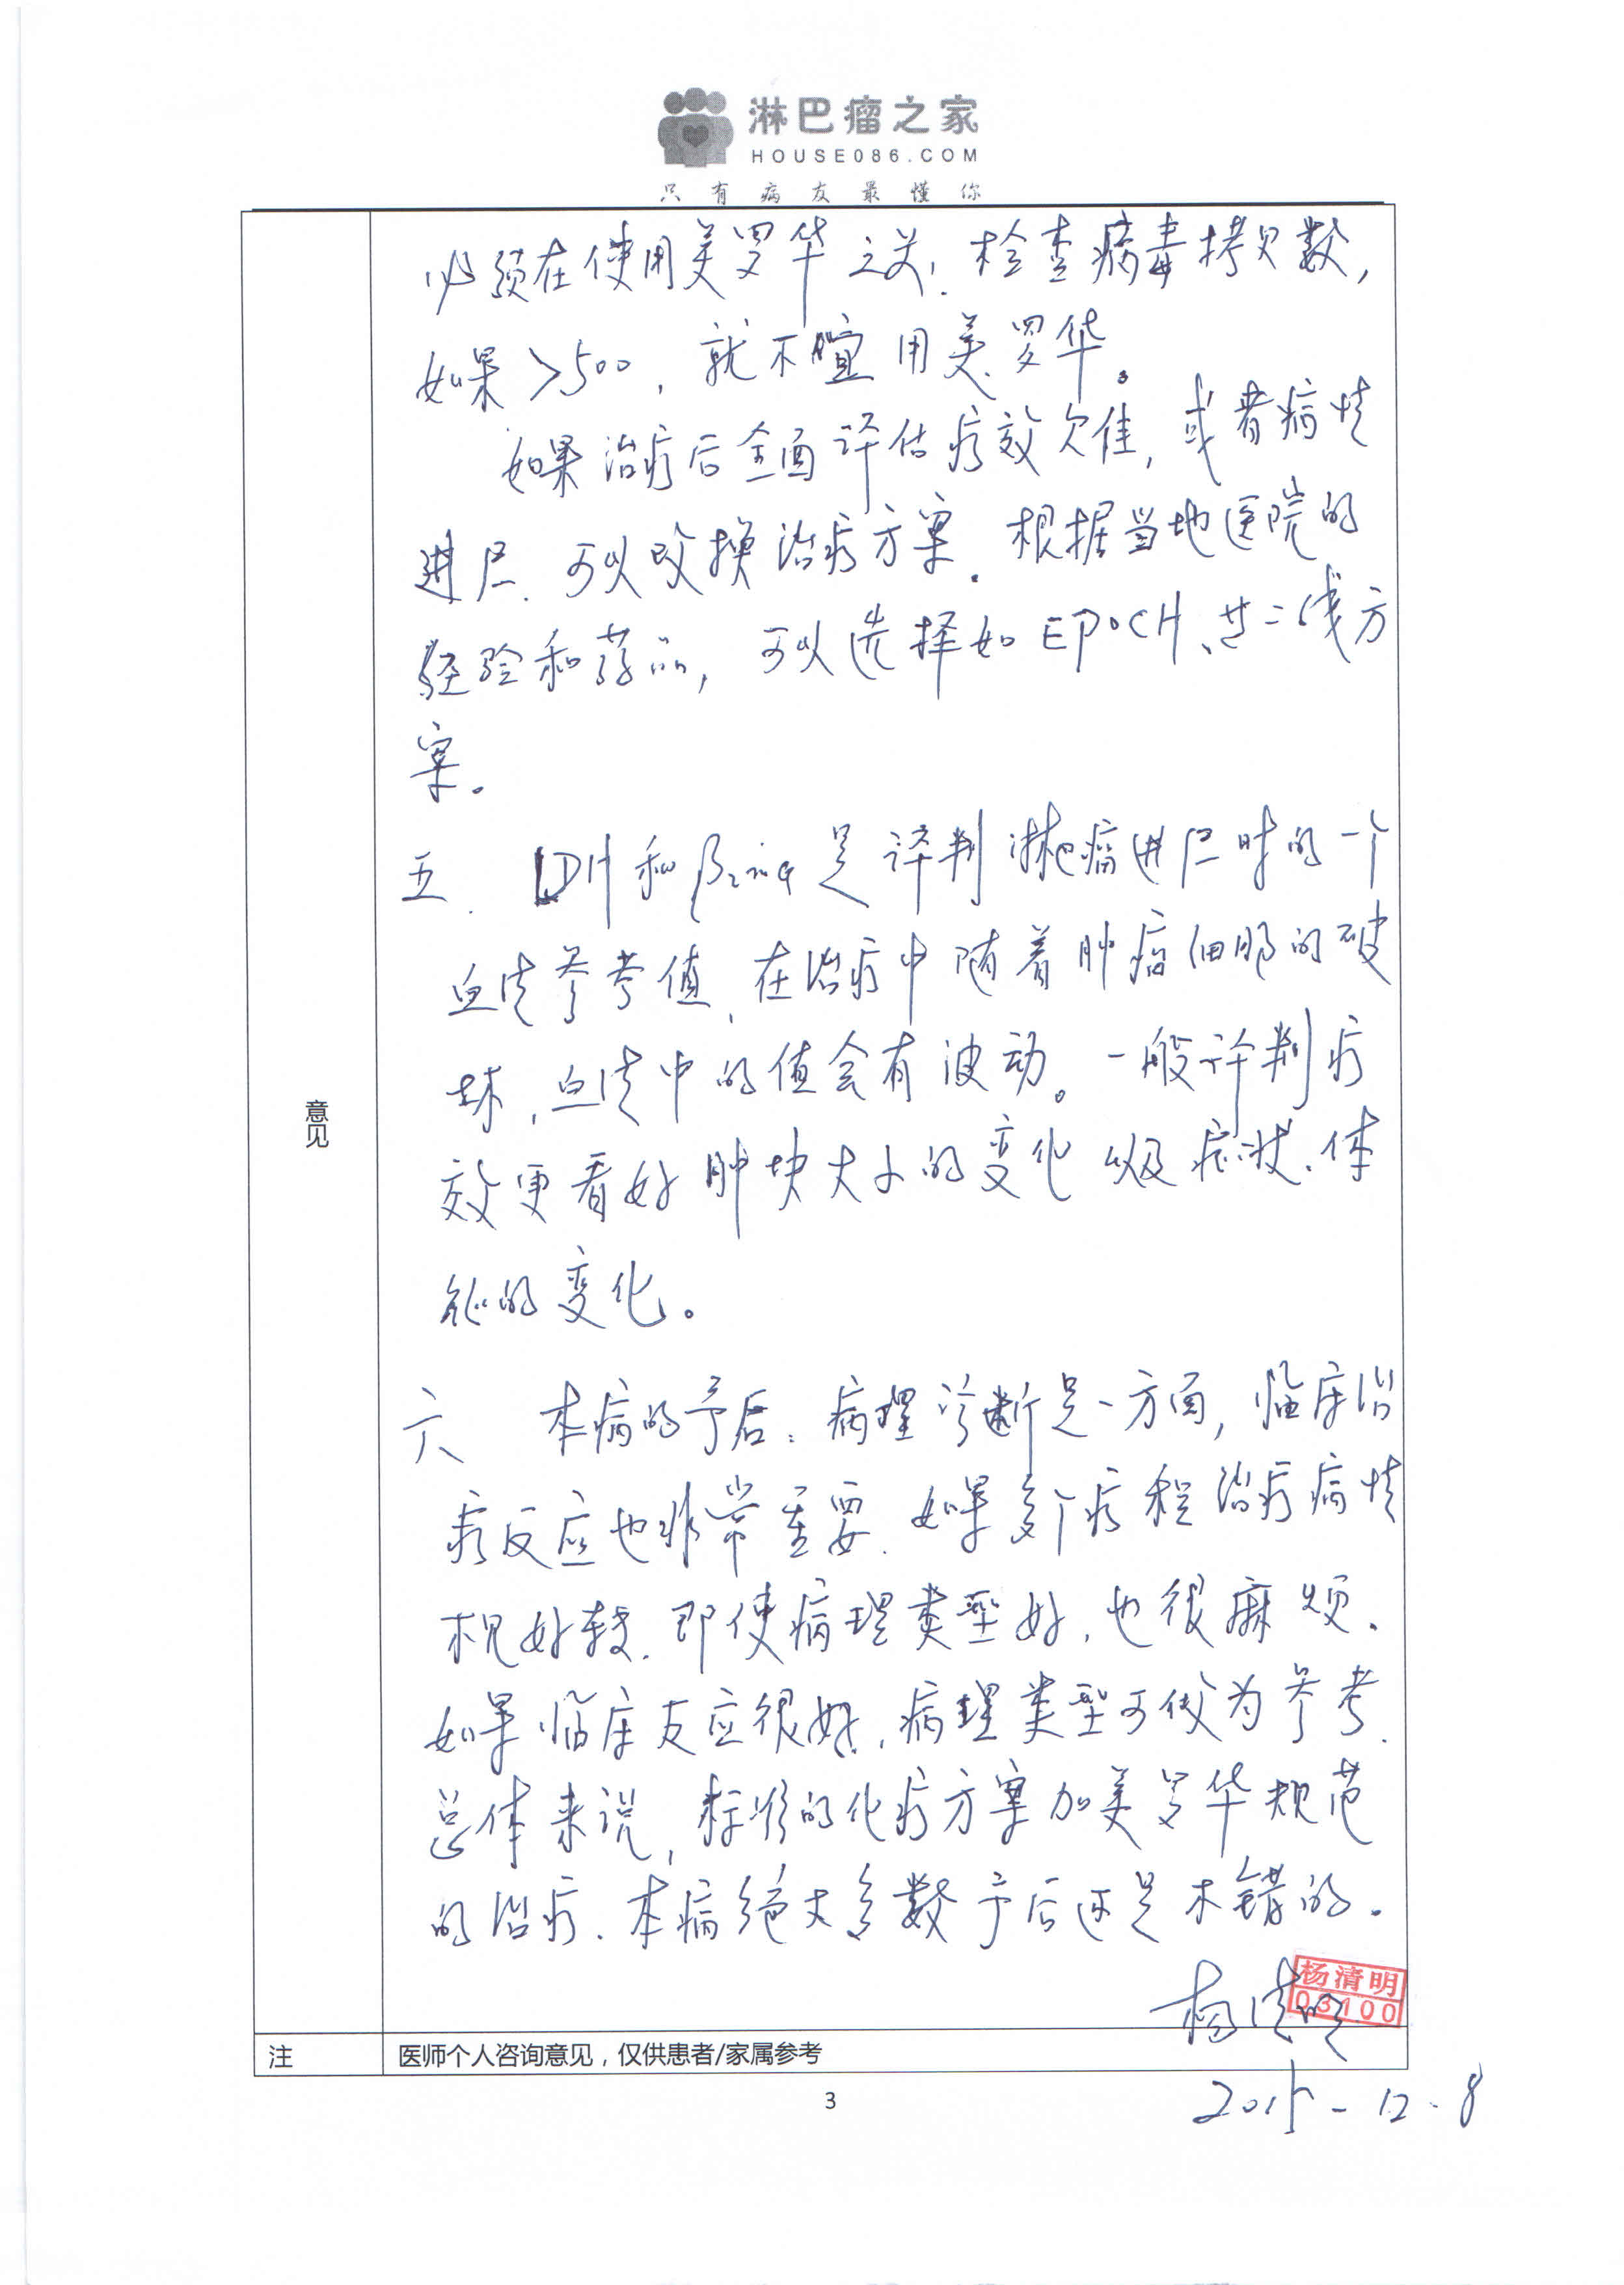 淋巴瘤之家
HOUSE086.COM
只有病友最懂你
必须在使用美罗华之前，检查病毒拷贝数，
如果>500，就不宜用美罗华。
如果治疗后全面评估疗效欠佳，或者病情
进展，可以改换治疗方案。根据当地医院的
经验和药品，可以选择如EPOCH、等二线方
案。
五、LDH和β2-mG是评判淋巴瘤进展时的一个
血清参考值，在治疗中随着肿瘤细胞的破
坏，血清中的值会有波动。一般评判疗
效更看好肿块大小的变化以及症状、体
能的变化。
意见
六 本病的予后：病理诊断是一方面，临床治
疗反应也非常重要。如果多个疗程治疗病情
未见好转，即使病理类型好，也很麻烦。
如果临床反应很好，病理类型可做为参考。
总体来说，标准的化疗方案加美罗华规范
的治疗，本病绝大多数予后还是不错的。
杨清明
杨清明
03100
注 医师个人咨询意见，仅供患者/家属参考
3
2015-12-8